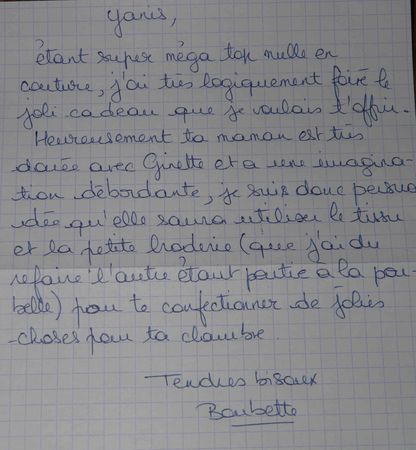 Yanis,
étant super méga top nulle en
couture, j'ai très logiquement foiré le
joli cadeau que je voulais t'offrir.
Heureusement ta maman est très
douée avec Ginette et a une imagina-
tion débordante, je suis donc persua
idée qu'elle saura utiliser le tissu
et la petite broderie (que j'ai du
refaire l'autre étant partie à la pou-
belle) pour te confectionner de jolies
-choses pour ta chambre.
Tendres bisoux
Boubette